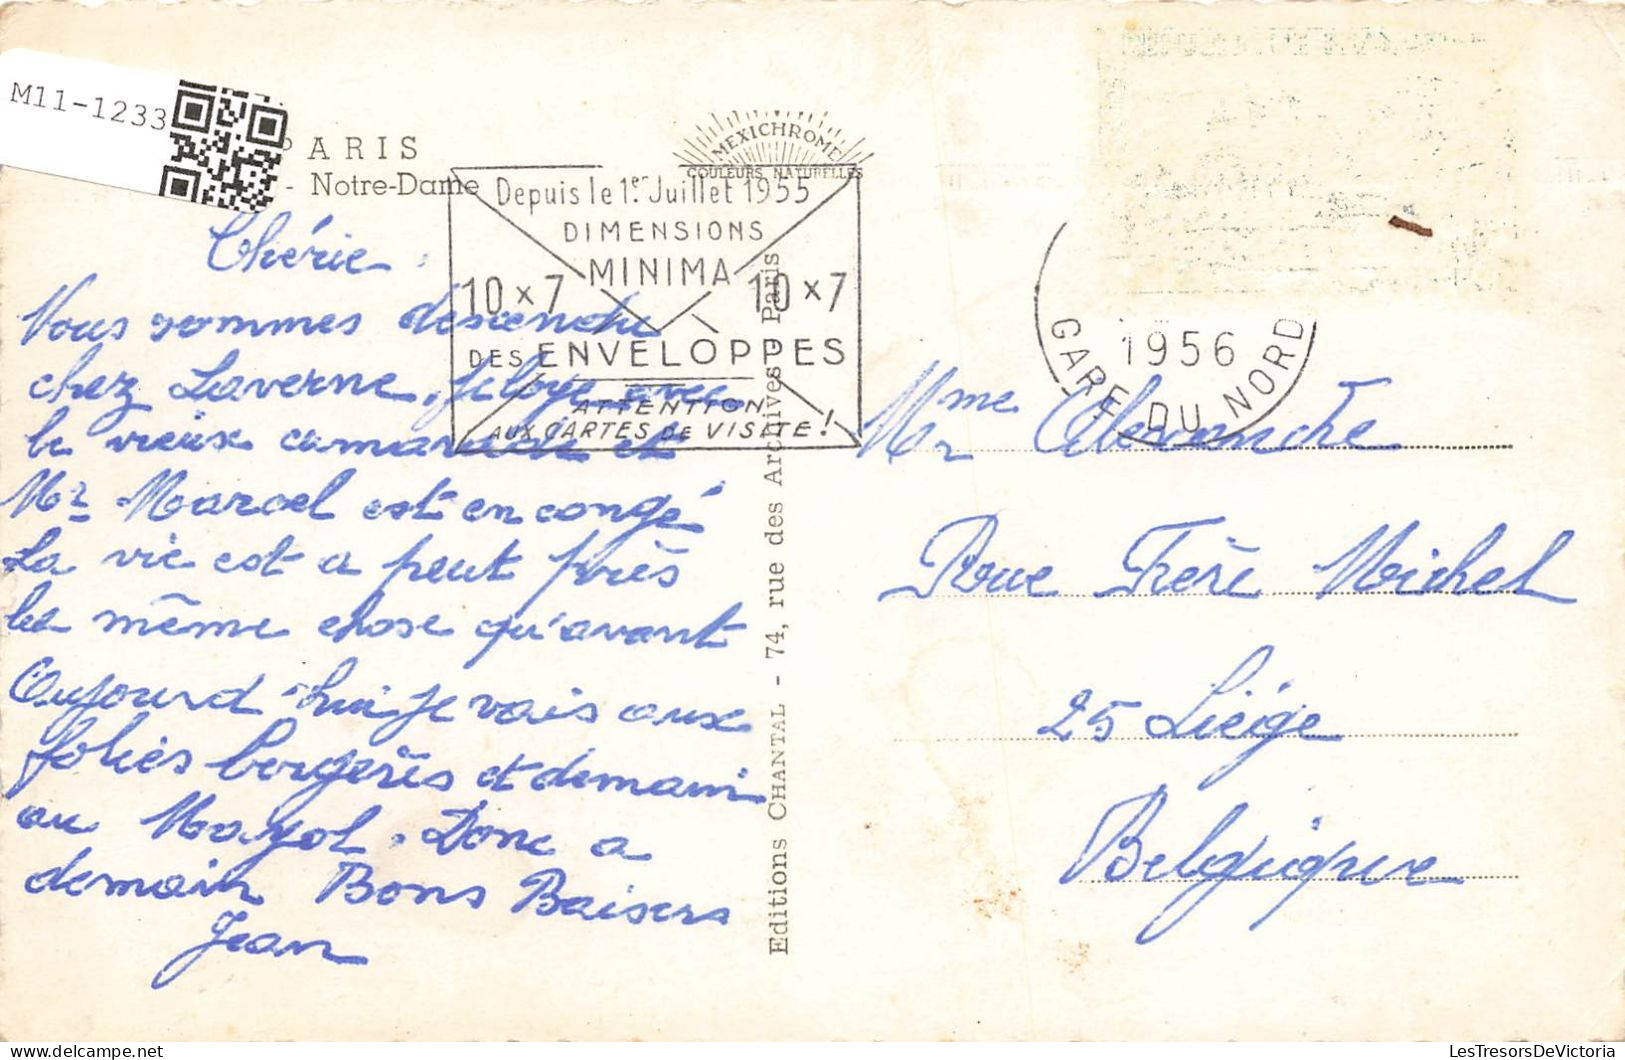 M11-1233
PARIS
- Notre-Dame
MEXICHROME
COULEURS NATURELLES
Depuis le 1er Juillet 1955
DIMENSIONS
MINIMA
10 x 7 10 x 7
DES ENVELOPPES
ATTENTION
AUX CARTES DE VISITE !
1956
GARE DU NORD
Chérie.
Nous sommes descendu
chez Laverne, je loge avec
le vieux camarade et
Mr Marcel est en congé
La vie est a peut près
la même chose qu'avant
Aujourd'hui je vais aux
folies bergères et demain
au Mayol. Donc a
demain Bons Baisers
Jean
Editions CHANTAL - 74, rue des Archives - Paris
Mme
Rue Frère Michel
25 Liége
Belgique
LesTresorsDeVictoria.com